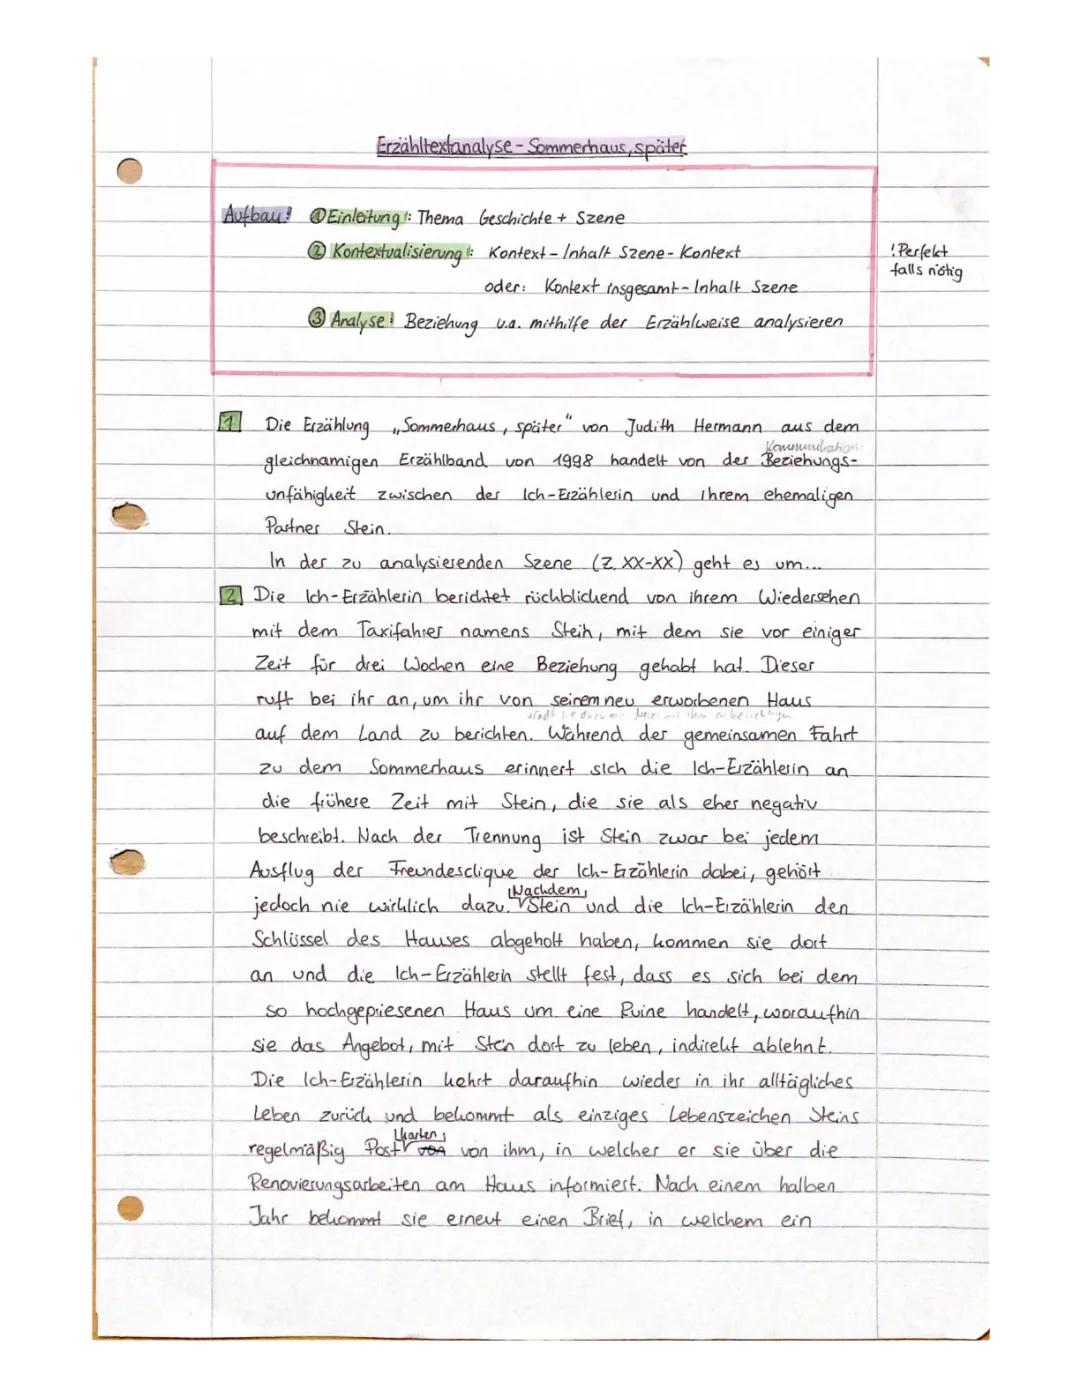 Erzähltextanalyse - Sommerhaus, später
Aufbau: ① Einleitung: Thema Geschichte + Szene
② Kontextualisierung: Kontext - Inhalt Szene - Kontext
oder: Kontext insgesamt - Inhalt Szene
! Perfekt
falls nötig
③ Analyse: Beziehung u.a. mithilfe der Erzählweise analysieren
1 Die Erzählung „Sommerhaus, später" von Judith Hermann aus dem
Kommunikations-
gleichnamigen Erzählband von 1998 handelt von der Beziehungs-
unfähigkeit zwischen der Ich-Erzählerin und ihrem ehemaligen
Partner Stein.
In der zu analysierenden Szene (Z. XX-XX) geht es um...
2 Die Ich-Erzählerin berichtet rückblickend von ihrem Wiedersehen
mit dem Taxifahrer namens Stein, mit dem sie vor einiger
Zeit für drei Wochen eine Beziehung gehabt hat. Dieser
ruft bei ihr an, um ihr von seinem neu erworbenen Haus
sie dazu ein mit ihm zu besichtigen
auf dem Land zu berichten. Während der gemeinsamen Fahrt
zu dem Sommerhaus erinnert sich die Ich-Erzählerin an
die frühere Zeit mit Stein, die sie als eher negativ
beschreibt. Nach der Trennung ist Stein zwar bei jedem
Ausflug der Freundesclique der Ich-Erzählerin dabei, gehört
Nachdem
jedoch nie wirklich dazu. Stein und die Ich-Erzählerin den
Schlüssel des Hauses abgeholt haben, kommen sie dort
an und die Ich-Erzählerin stellt fest, dass es sich bei dem
so hochgepriesenen Haus um eine Ruine handelt, woraufhin
sie das Angebot, mit Stein dort zu leben, indirekt ablehnt.
Die Ich-Erzählerin kehrt daraufhin wieder in ihr alltägliches
Leben zurück und bekommt als einziges Lebenszeichen Steins
karten
regelmäßig Post von von ihm, in welcher er sie über die
Renovierungsarbeiten am Haus informiert. Nach einem halben
Jahr bekommt sie erneut einen Brief, in welchem ein